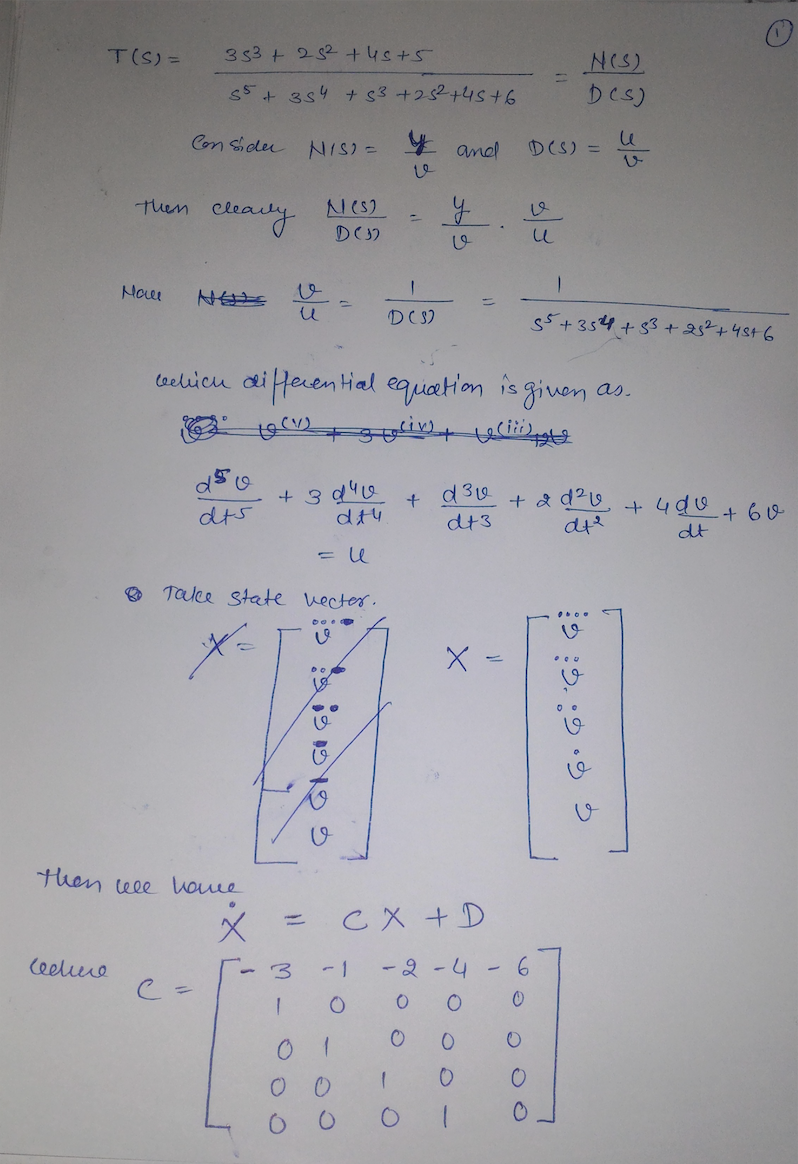 1
T(S) = 3S³ + 2S² + 4S + 5 / S⁵ + 3S⁴ + S³ + 2S² + 4S + 6 = N(S) / D(S)
Consider N(S) = y/v and D(S) = u/v
then clearly N(S)/D(S) = y/v . v/u
Now v/u = 1/D(S) = 1 / S⁵ + 3S⁴ + S³ + 2S² + 4S + 6
which differential equation is given as.
v(v) + 3v(iv) + v(iii)
d⁵v/dt5 + 3 d⁴v/dt4 + d3v/dt3 + 2 d²v/dt² + 4 dv/dt + 6v
= u
Take state vector.
X = [ v v v v v v ] X = [ v⃜ v⃛ v̈ v̇ v ]
then we have
Ẋ = CX + D
where C = [ -3 -1 -2 -4 -6
1 0 0 0 0
0 1 0 0 0
0 0 1 0 0
0 0 0 1 0 ]